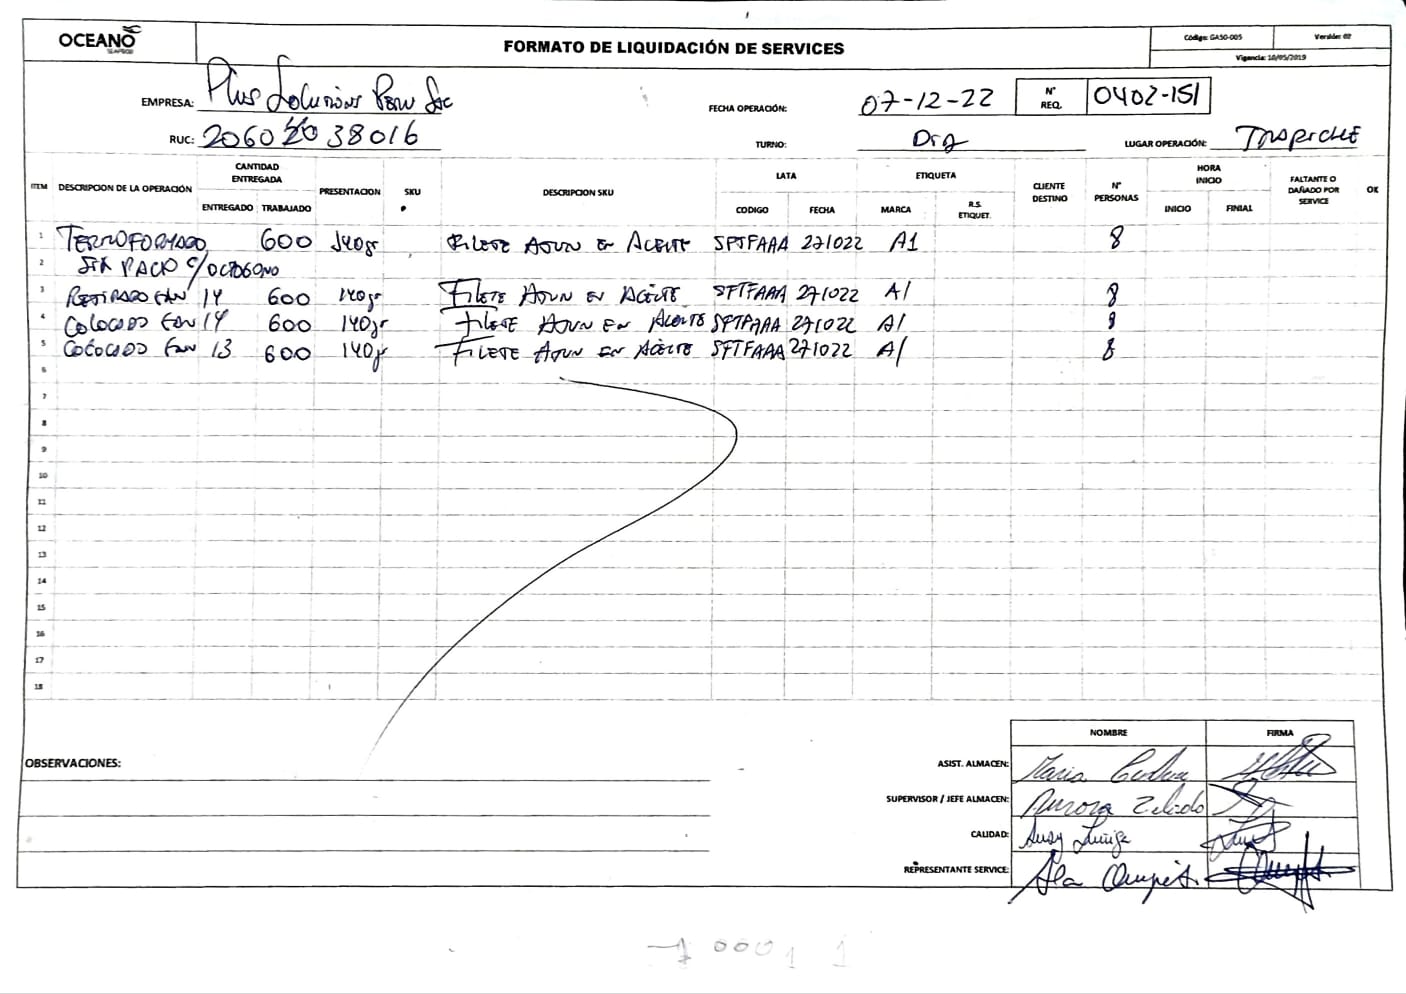 OCEANO
SEAFOOD
FORMATO DE LIQUIDACIÓN DE SERVICES
Código: GASO-005
Versión: 02
Vigencia: 10/05/2019
EMPRESA: Plus Solutions Peru Sac
FECHA OPERACIÓN: 07-12-22
N° REQ. 0402-151
RUC: 20602038016
TURNO: Dia
LUGAR OPERACIÓN: TRAPICHE
ITEM DESCRIPCION DE LA OPERACIÓN CANTIDAD ENTREGADA ENTREGADO TRABAJADO PRESENTACION SKU DESCRIPCION SKU LATA CODIGO FECHA ETIQUETA MARCA R.S. ETIQUET. CLIENTE DESTINO N° PERSONAS HORA INICIO INICIO FINIAL FALTANTE O DAÑADO POR SERVICE OK
1 TERMOFORMADO 600 140gr FILETE ATUN EN ACEITE SPTFAAA 271022 A1 8
2 SIX PACK C/OCTOGONO
3 RETIRADO FAN 14 600 140gr FILETE ATUN EN ACEITE SFTFAAA 271022 A1 8
4 COLOCADO FAN 14 600 140gr FILETE ATUN EN ACEITE SPTFAAA 271022 A1 8
5 COLOCADO FAN 13 600 140gr FILETE ATUN EN ACEITE SFTFAAA 271022 A1 8
6
7
8
9
10
11
12
13
14
15
16
17
18
NOMBRE FIRMA
OBSERVACIONES:
ASIST. ALMACEN: Maria
SUPERVISOR / JEFE ALMACEN: Aurora Zelado
CALIDAD: Susy Zuñiga
REPRESENTANTE SERVICE: